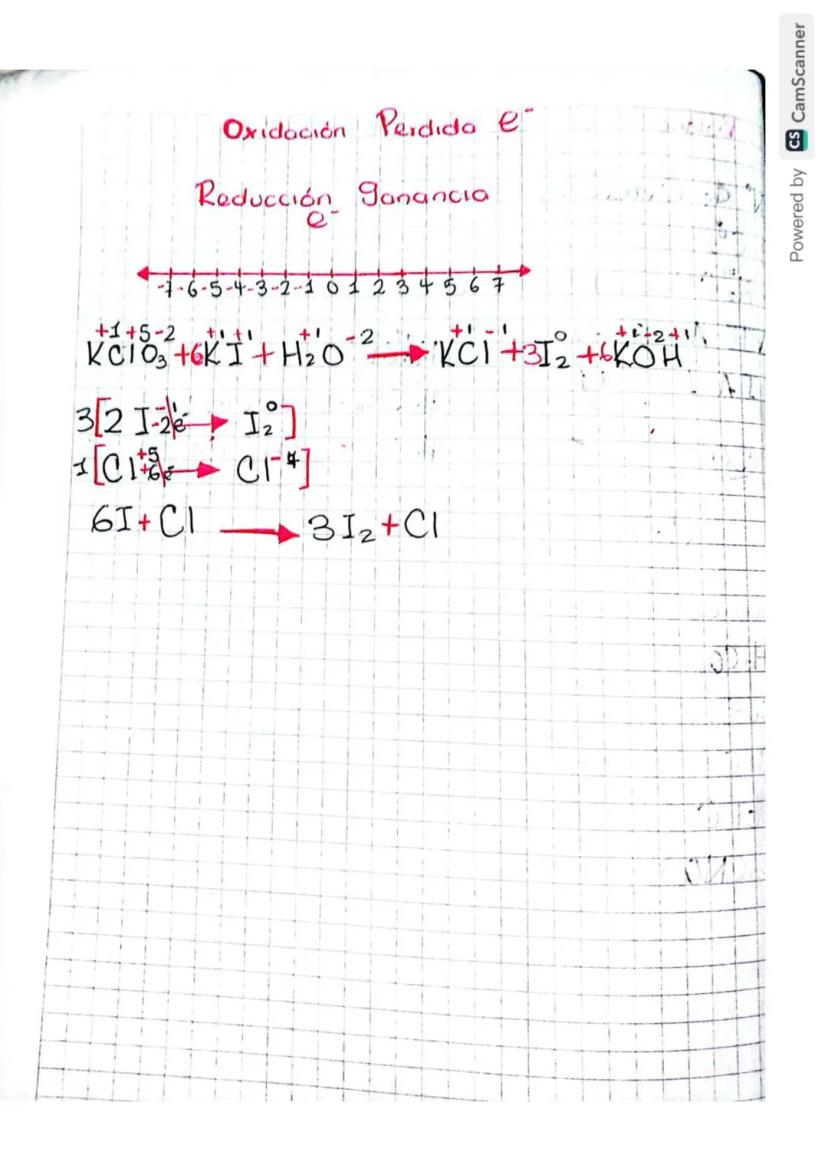 Oxidación Perdida e⁻
Reducción ganancia
e⁻
-7 -6 -5 -4 -3 -2 -1 0 1 2 3 4 5 6 7
+1 +5 -2 +1 +1 +1 -2 +1 -1 0 +1 -2 +1
KClO₃ + 6KI + H₂O → KCl + 3I₂ + 6KOH
3[2 I⁻¹ -2e⁻ → I₂⁰]
1[Cl⁺⁵ +6e⁻ → Cl⁻¹]
6I + Cl → 3I₂ + Cl
Powered by CS CamScanner